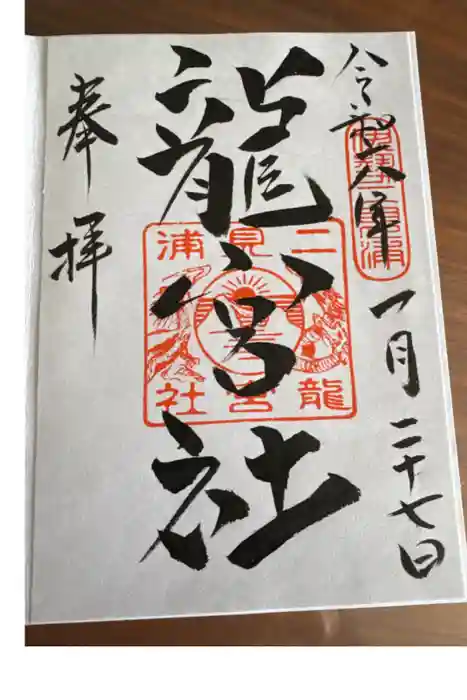 令和六年
一月二十七日
伊勢二見浦
龍宮社
二見浦
龍宮社
奉拝